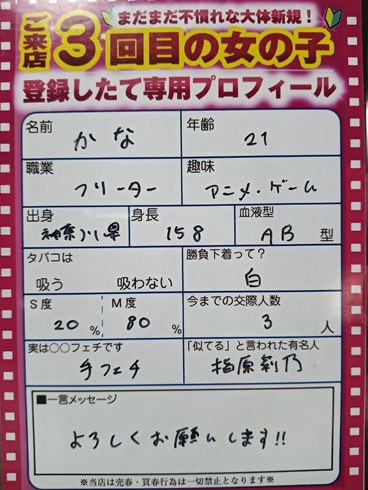 まだまだ不慣れな大体新規!
ご来店3回目の女の子
登録したて専用プロフィール
名前 かな 年齢 21
職業 フリーター 趣味 アニメ・ゲーム
出身 神奈川県 身長 158 血液型 AB 型
タバコは 吸う 吸わない 勝負下着って? 白
S度 20 % M度 80 % 今までの交際人数 3 人
実は○○フェチです 手フェチ 「似てる」と言われた有名人 指原莉乃
■一言メッセージ
よろしくお願いします!!
※当店は売春・買春行為は一切禁止となります※